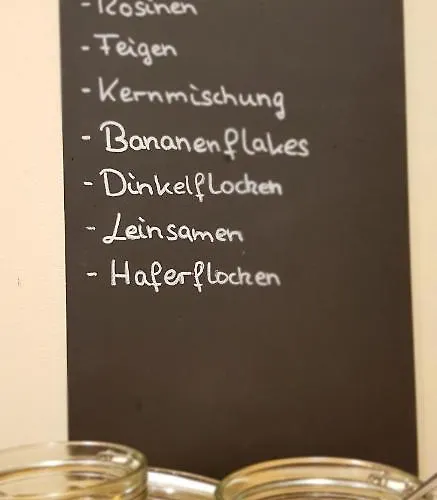 - Rosinen
- Feigen
- Kernmischung
- Bananenflakes
- Dinkelflocken
- Leinsamen
- Haferflocken